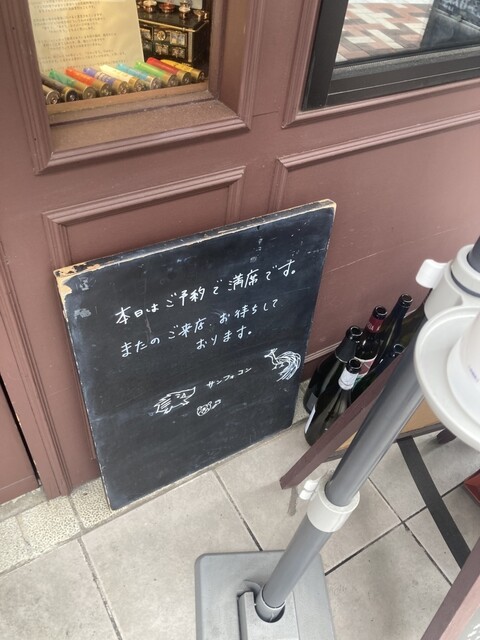 本日はご予約で満席です。
またのご来店、お待ちして
おります。
サンフォコン